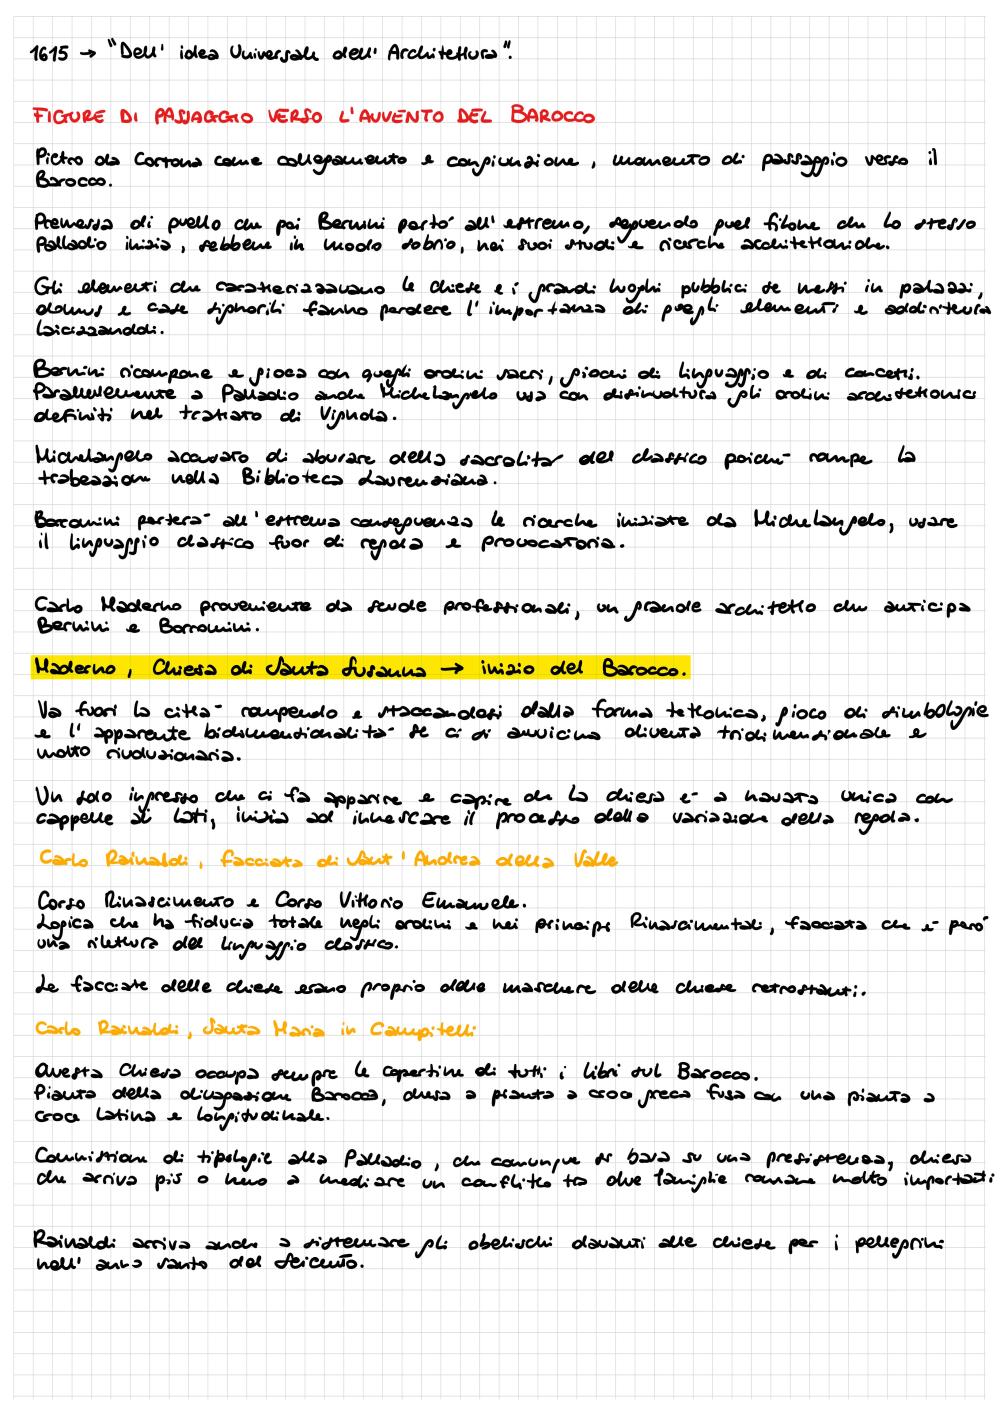 1615 → "Dell' idea Universale dell' Architettura".
FIGURE DI PASSAGGIO VERSO L'AVVENTO DEL BAROCCO
Pietro da Cortona come collegamento e congiunzione, momento di passaggio verso il
Barocco.
Premessa di quello che poi Bernini portò all' estremo, seguendo quel filone che lo stesso
Palladio inizia, sebbene in modo sobrio, nei suoi studi e ricerche architettoniche.
Gli elementi che caratterizzavano le chiese e i grandi luoghi pubblici se messi in palazzi,
domus e case signorili fanno perdere l' importanza di quegli elementi e addirittura
laicizzanddi.
Bernini ricompone e gioca con quegli ordini sacri, giochi di linguaggio e di concetti.
Parallelemente a Palladio anche Michelangelo usa con disinvoltura gli ordini architettonici
definiti nel trattato di Vignola.
Michelangelo accusato di abusare della sacralità del classico poiché rompe la
trabeazione nella Biblioteca Laurenziana.
Borromini porterà all' estrema conseguenza le ricerche iniziate da Michelangelo, usare
il linguaggio classico fuor di regola e provocatoria.
Carlo Maderno proveniente da scuole professionali, un grande architetto che anticipa
Bernini e Borromini.
Maderno, Chiesa di Santa Susanna → inizio del Barocco.
Va fuori la città rompendo e staccandosi dalla forma tettonica, gioco di simbologie
e l' apparente bidimensionalità se ci si avvicina diventa tridimensionale e
molto rivoluzionaria.
Un solo ingresso che ci fa apparire e capire che la chiesa è a navata unica con
cappelle ai lati, inizia ad innescare il processo della variazione della regola.
Carlo Rainaldi, facciata di Sant' Andrea della Valle
Corso Rinascimento e Corso Vittorio Emanuele.
Logica che ha fiducia totale negli ordini e nei principi Rinascimentali, facciata che è però
una rilettura del linguaggio classico.
Le facciate delle chiese erano proprio delle maschere delle chiese retrostanti.
Carlo Rainaldi, Santa Maria in Campitelli
Questa Chiesa occupa sempre le copertine di tutti i libri sul Barocco.
Pianta della dilatazione Barocca, chiesa a pianta a croce greca fusa con una pianta a
croce latina e longitudinale.
Commistione di tipologie alla Palladio, che comunque si basa su una presistenza, chiesa
che arriva più o meno a mediare un conflitto tra due famiglie romane molto importanti
Rainaldi arriva anche a sistemare gli obelischi davanti alle chiese per i pellegrini
nell' anno santo del Seicento.